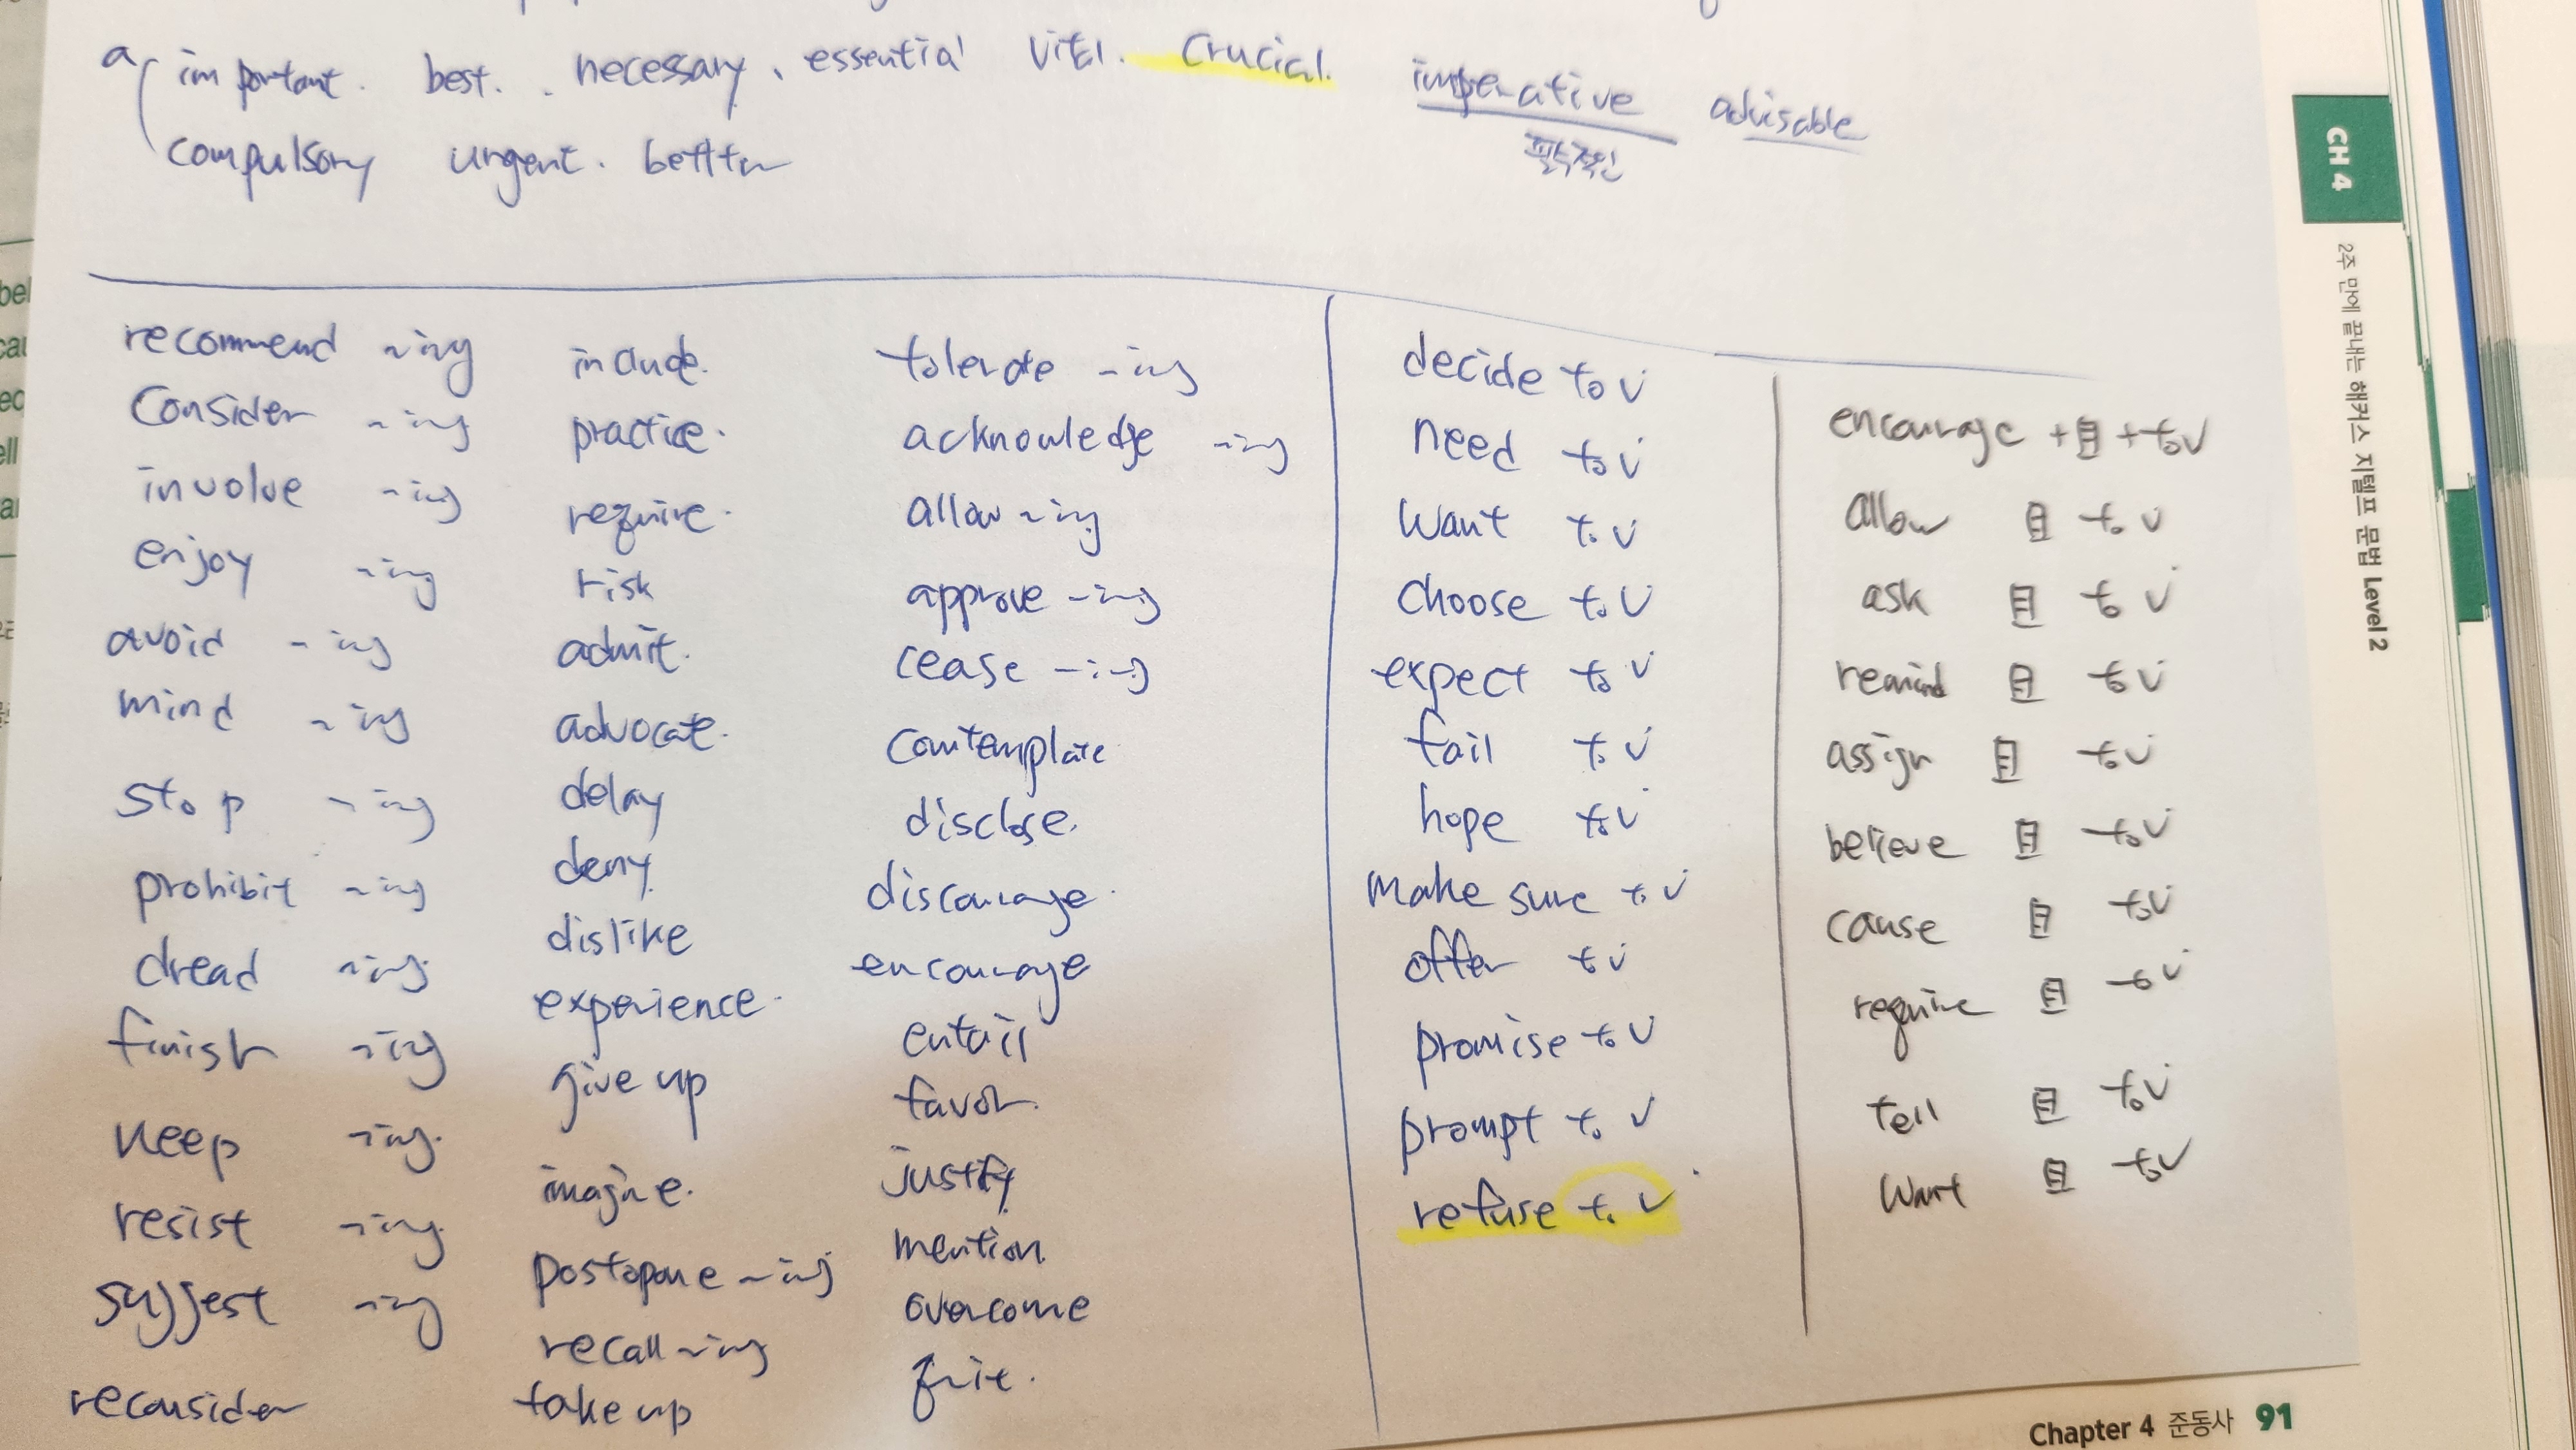 a
important. best. necessary. essential vital. crucial. imperative advisable
필수적인
compulsory urgent. better
recommend ~ing
consider ~ing
involve ~ing
enjoy ~ing
avoid ~ing
mind ~ing
stop ~ing
prohibit ~ing
dread ~ing
finish ~ing
keep ~ing
resist ~ing
suggest ~ing
reconsider
include.
practice.
require.
risk
admit.
advocate.
delay
deny
dislike
experience.
give up
imagine.
postopone ~ing
recall ~ing
take up
tolerate ~ing
acknowledge ~ing
allow ~ing
approve ~ing
cease ~ing
comtemplate
disclose.
discourage
encourage
entail
favor.
justify
mention
overcome
quit.
decide to v
need to v
want to v
choose to v
expect to v
fail to v
hope to v
make sure to v
offer to v
promise to v
prompt to v
refuse to v
encourage + 목 + to v
allow 목 to v
ask 목 to v
remind 목 to v
assign 목 to v
believe 목 to v
cause 목 to v
require 목 to v
tell 목 to v
want 목 to v
CH 4
2주 만에 끝내는 해커스 지텔프 문법 Level 2
Chapter 4 준동사 91